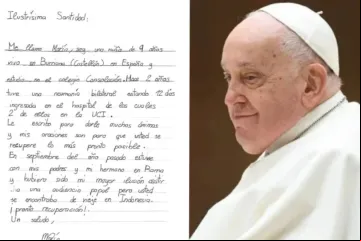 Ilustrísima Santidad:
Me llamo María, soy una niña de 9 años
vivo en Borriana (Castellón) en España y
estudio en el colegio Consolación. Hace 2 años
tuve una neumonía bilateral estando 12 días
ingresada en el hospital de los cuales
2 de ellos en la UCI.
Le escribo para darle muchos ánimos
y mis oraciones son para que usted se
recupere lo más pronto posible.
En septiembre del año pasado estuve
con mis padres y mi hermano en Roma
y hubiera sido mi mayor ilusión asistir
a una audiencia papal pero usted
se encontraba de viaje en Indonesia.
¡pronto recuperación!.
Un saludo,